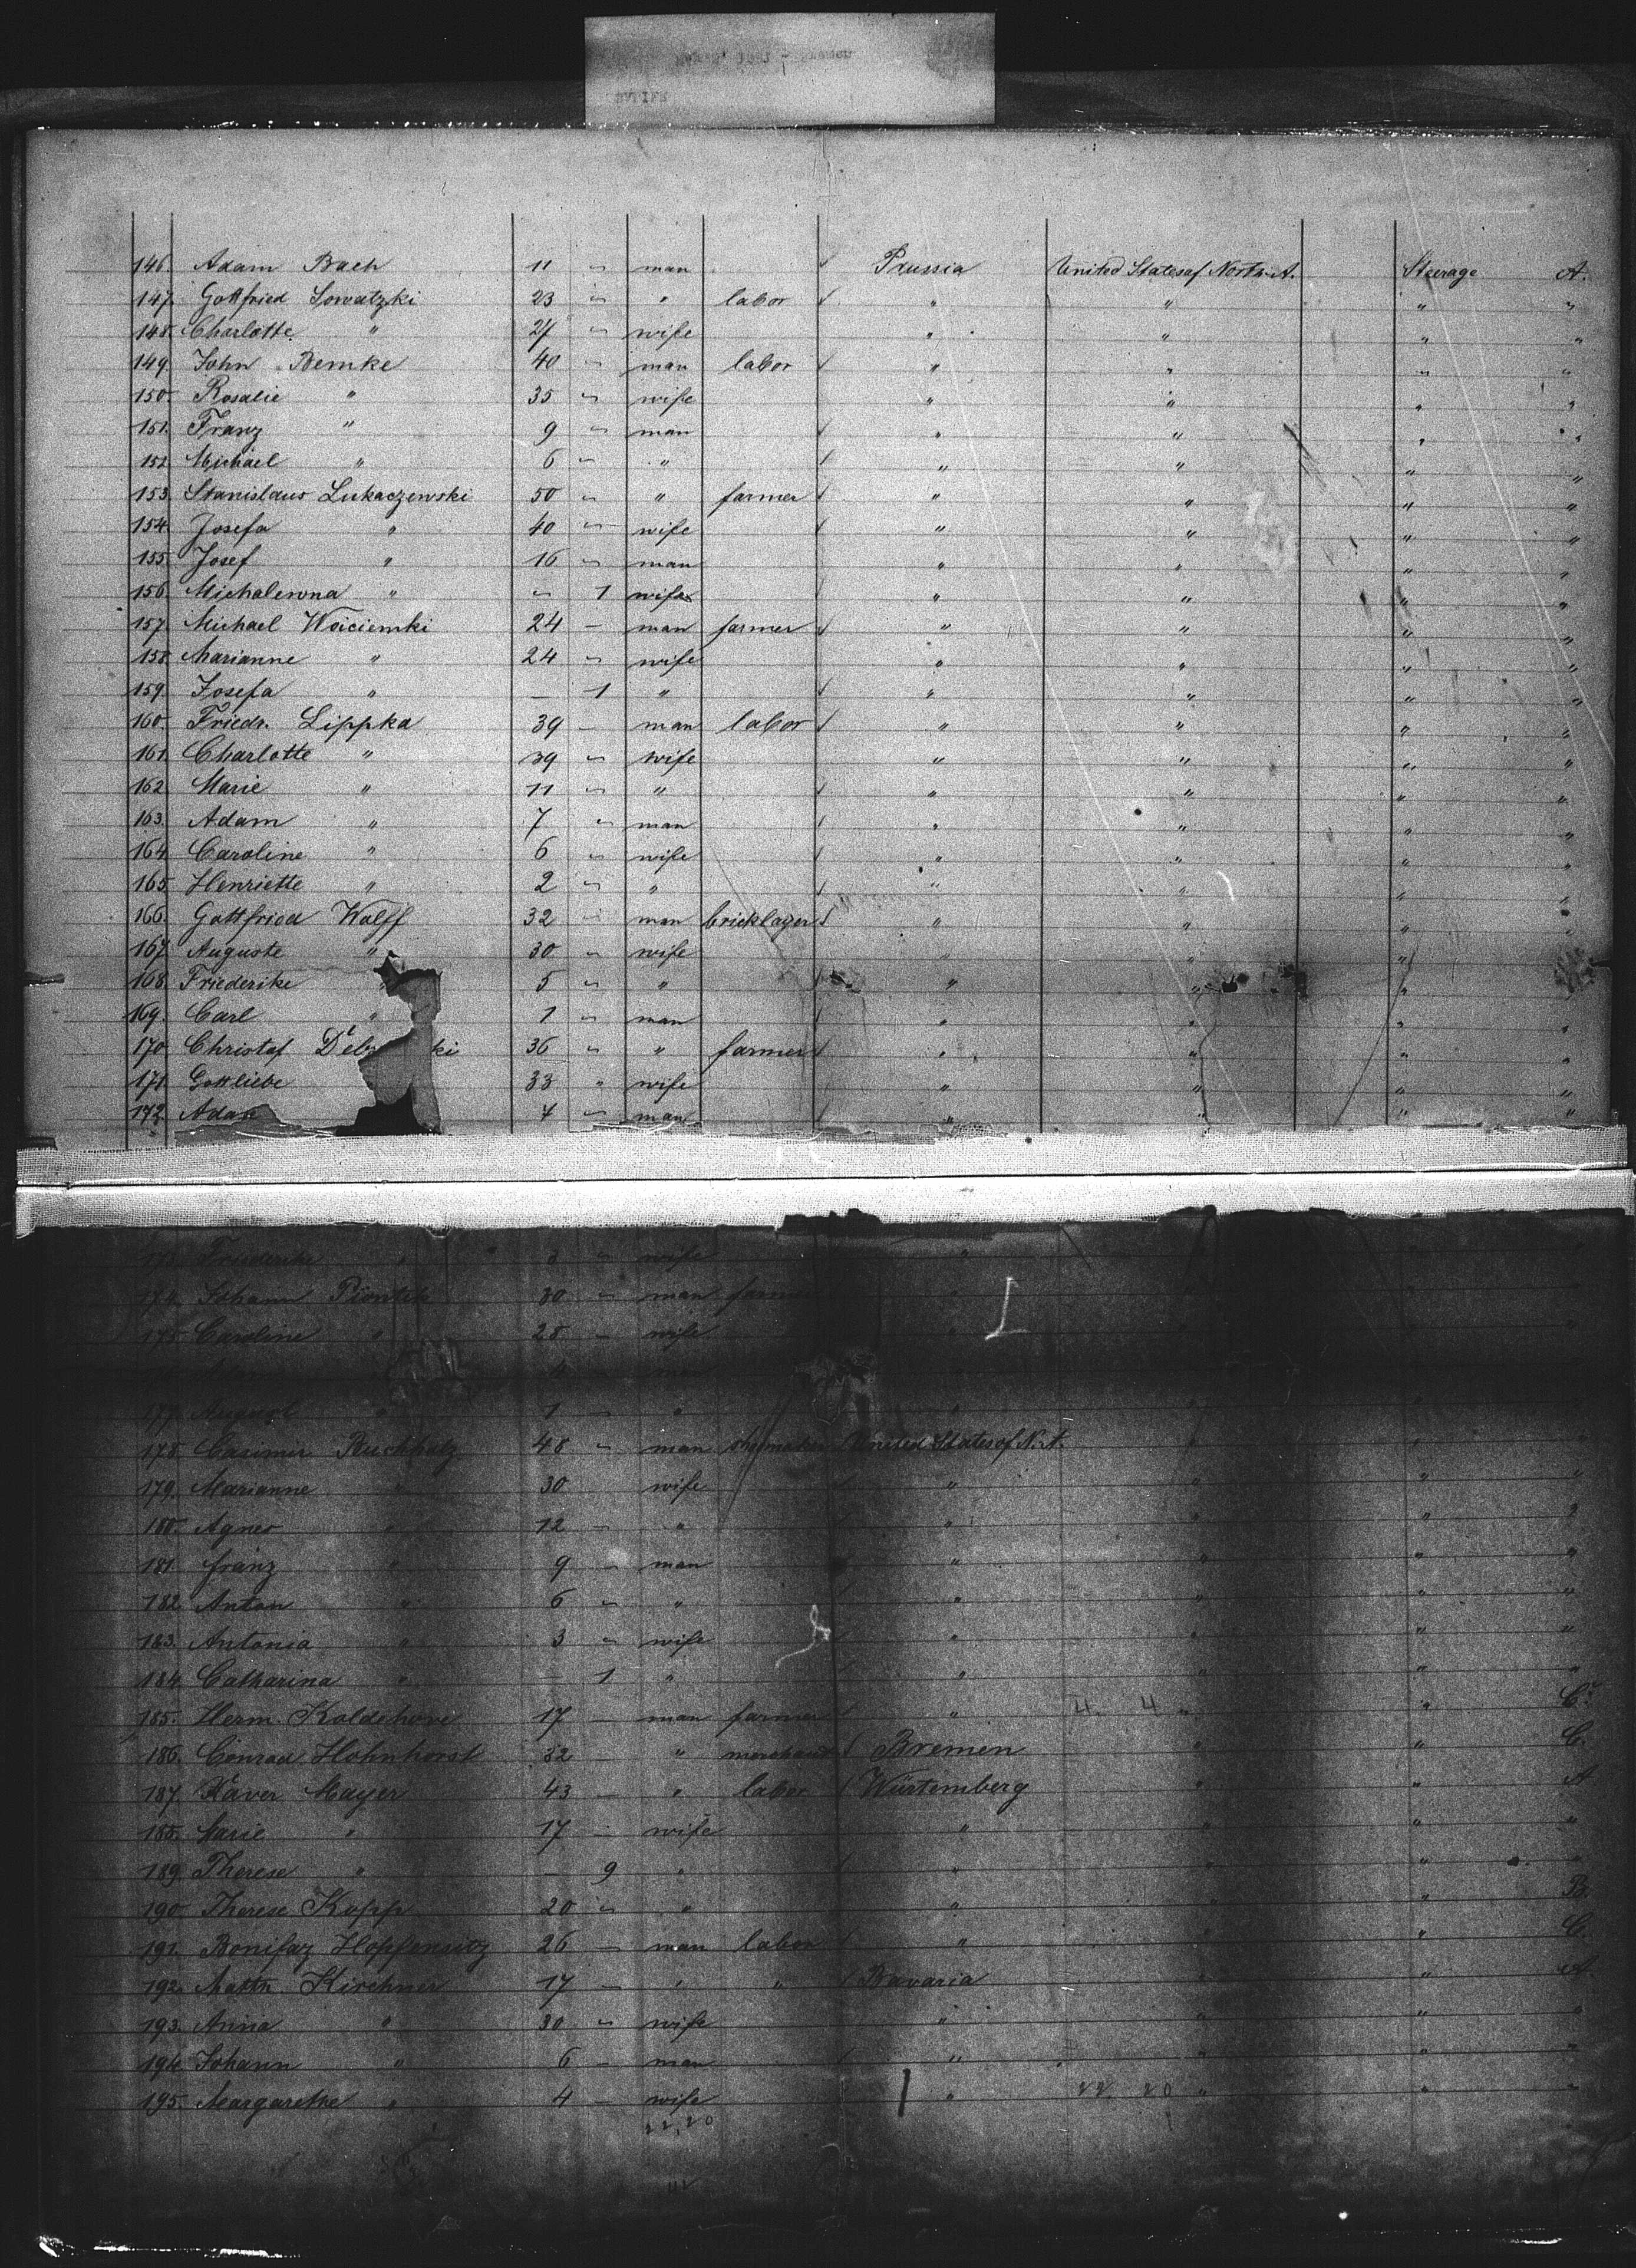 146. Adam Bach 11 " man Prussia United States of North-A. Steerage A.
147. Gottfried Sowatzki 23 " " labor " " " "
148. Charlotte " 27 " wife " " " "
149. John Bemke 40 " man labor " " " "
150. Rosalie " 35 " wife " " " "
151. Franz " 9 " man " " " "
152. Michael " 6 " " " " " "
153. Stanislaus Lukaczewski 50 " " farmer " " " "
154. Josefa " 40 " wife " " " "
155. Josef " 16 " man " " " "
156. Michalenna " " 1 wife " " " "
157. Michael Woiciemki 24 — man farmer " " " "
158. Marianne " 24 " wife " " " "
159. Josefa " — 1 " " " " "
160. Friedr. Lippka 39 — man labor " " " "
161. Charlotte " 39 " wife " " " "
162. Marie " 11 " " " " " "
163. Adam " 7 " man " " " "
164. Caroline " 6 " wife " " " "
165. Henriette " 2 " " " " " "
166. Gottfried Wolff 32 " man bricklayer " " " "
167. Auguste " 30 " wife " " " "
168. Friederike " 5 " " " " " "
169. Carl " 1 " man " " " "
170. Christof ki 36 " " farmer " " " "
171. Gottliebe 33 " wife " " " "
172. Adam 4 " man " " " "
Friederike " 3 " wife "
174. Johann Piontek 30 " man farmer "
175. Caroline " 28 — wife "
177. August " 1 — " "
178. Casimir Buchholz 48 " man shoemaker United States of N.A. " " "
179. Marianne " 30 wife " " " "
180. Agnes " 12 — " " " " "
181. Franz " 9 " man " " " "
182. Anton " 6 " " " " " "
183. Antonia " 3 " wife " " " "
184. Catharina " — 1 " " " " "
185. Herm. Koldehove 17 — man farmer " 4 4 " " C.
186. Conrad Hohnhorst 32 — " merchant Bremen " " C.
187. Xaver Mayer 43 — " labor Würtemberg " " A
188. Marie " 17 — wife " " " "
189. Therese " — 9 " " " " "
190. Therese Kopp 20 " " " " " B.
191. Bonifaz Hopfensitz 26 — man labor " " " C.
192. Matth. Kirchner 17 — " " Bavaria " " A.
193. Anna " 30 " wife " " " "
194. Johann " 6 — man " " " "
195. Margarethe " 4 — wife " 22 20 " " "
22,20